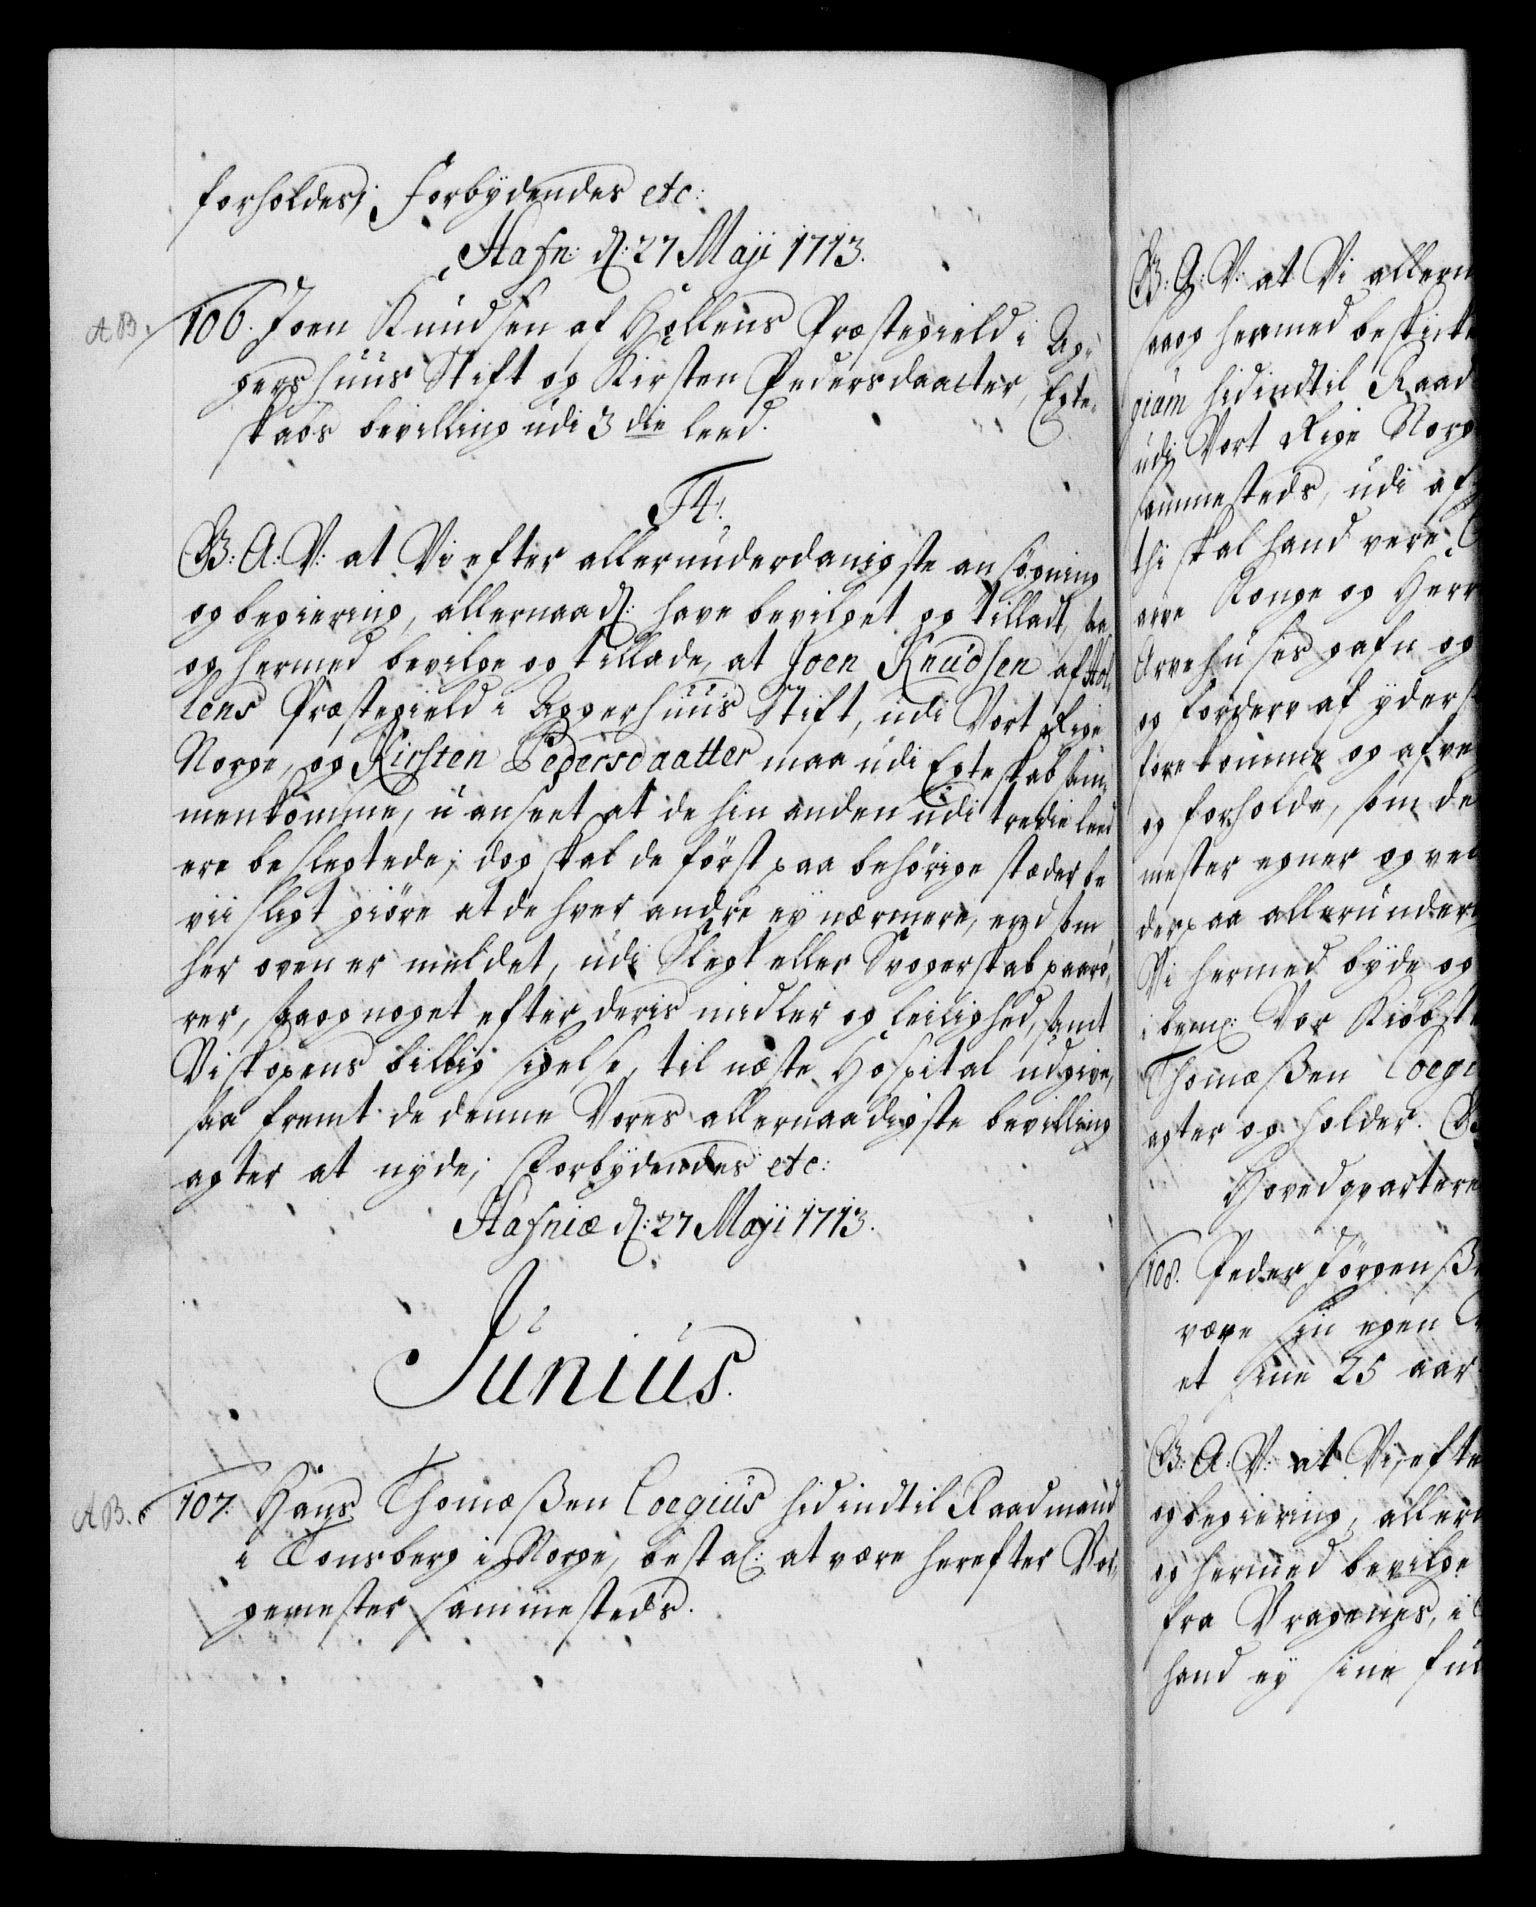 forholdes; Forbÿdendes etc:
Hafn: d: 27 Maji 1713.
AB. 106. Joen Knudsen af Hollens Præstegield i Ag-
gershuus Stift og Kirsten Pedersdaatter, Egte-
skabs bevilling udi 3die leed.
F4.
G: A: V: at Vi efter allerunderdanigste ansögning
og begiering, allernaad: have bevilget og tilladt, saa
og hermed bevilge og tillade, at Joen Knudsen af Hol-
lens Præstegield i Aggershuus Stift, udi Vort Rige
Norge, og Kirsten Pedersdaatter maa udi Egteskab sam-
menkomme, uanseet at de hin anden udi tredie leed
ere beslegtede; dog skal de först paa behörige stæder be
viisligt giöre at de hver andre eÿ nærmere, end som
her oven er meldet, udi Slegt eller Svogerskab paarö-
rer, saa og noget efter deris midler og leilighed, samt
Biskopens billig sigelse, til næste Hospital udgive,
saa fremt de denne Vores allernaadigste bevilling
agter at nÿde; Forbÿdendes etc:
Hafniæ d: 27 Maji 1713.
Junius.
AB. 107. Hans Thomæßen Coegius hidindtil Raadmand
i Tonsberg i Norge, bestal: at være herefter Bor-
gemester sammesteds.
G: A: V: at Vi allern
saa og hermed beskicke
gium hidindtil Raad
udi Vort Rige Norg
sammesteds, udi af
thi skal hand vere
arve Konge og Herr
Arvehuses gafn og
og forderv af ÿders
forekomme og afve
og forholde, som de
mester egner og vel
derpaa allerunder
Vi hermed bÿde og
i bem: Vor Kiöbst
Thomæßen Coegi
agter og holder.
Hovedqvartere
108. Peder Jörgenß
være sin egen
et sine 25 aar
G: A: V: at Vi, efte
og begiering, allern
og hermed bevilge
fra Bragenes, i
hand eÿ sine ful